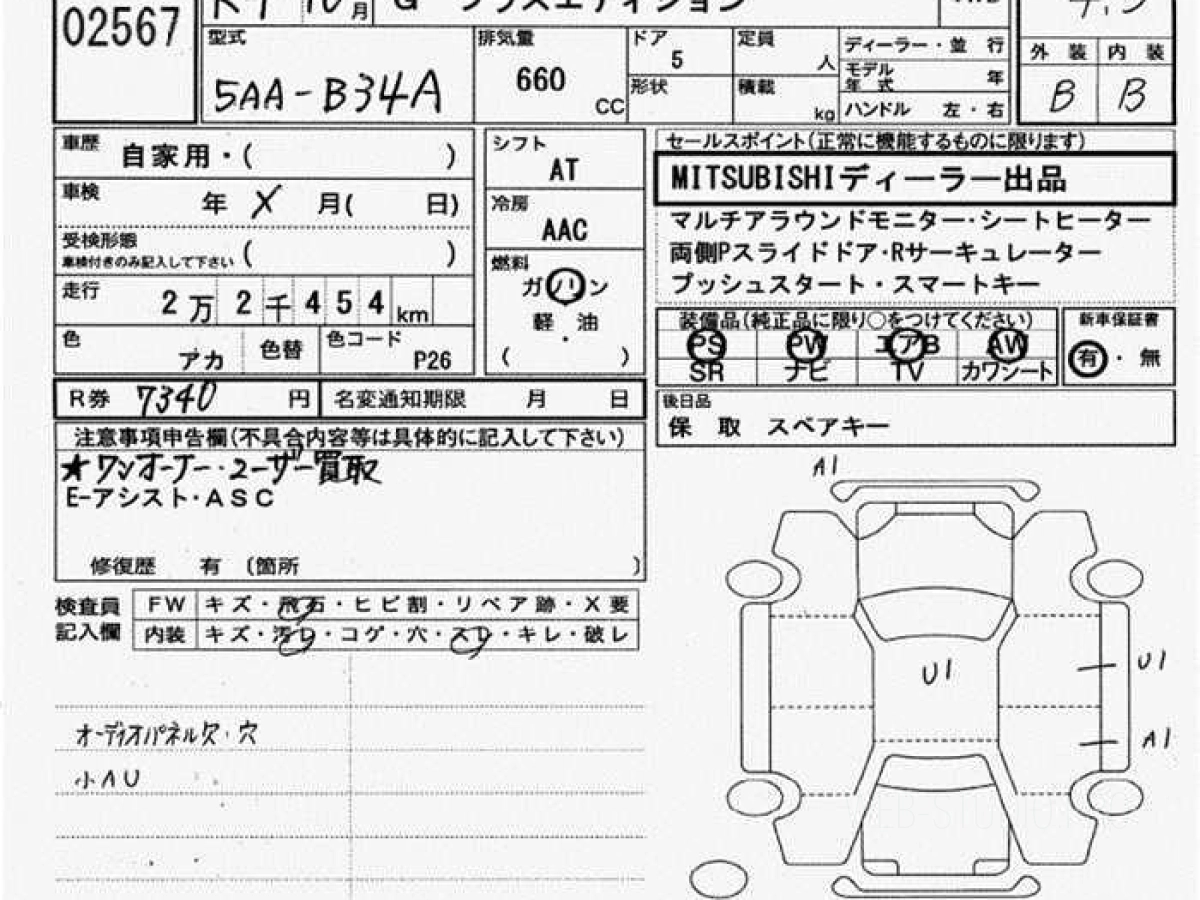 02567
R4 10月
G プラスエディション
型式
5AA-B34A
排気量
660
CC
ドア
5
形状
定員
人
積載
kg
ディーラー・並 行
モデル年式 年
ハンドル 左・右
外 装 内 装
B B
車歴
自家用・( )
車検
年 X 月( 日)
受検形態
車検付きのみ記入して下さい ( )
走行
2万2千454km
色
アカ
色替
色コード
P26
シフト
AT
冷房
AAC
燃料
ガソリン
軽・油
( )
セールスポイント(正常に機能するものに限ります)
MITSUBISHIディーラー出品
マルチアラウンドモニター・シートヒーター
両側Pスライドドア・Rサーキュレーター
プッシュスタート・スマートキー
装備品(純正品に限り○をつけてください)
PS PW エアB AW
SR ナビ TV カワシート
新車保証書
有・無
R券 7340 円
名変通知期限 月 日
後日品
保 取 スペアキー
注意事項申告欄(不具合内容等は具体的に記入して下さい)
★ワンオーナー・ユーザー買取
E-アシスト・ASC
修復歴 有 (箇所 )
検査員記入欄
FW キズ・飛石・ヒビ割・リペア跡・X要
内装 キズ・汚レ・コゲ・穴・スレ・キレ・破レ
オーディオパネル欠・穴
小AU
A1
U1
U1
A1